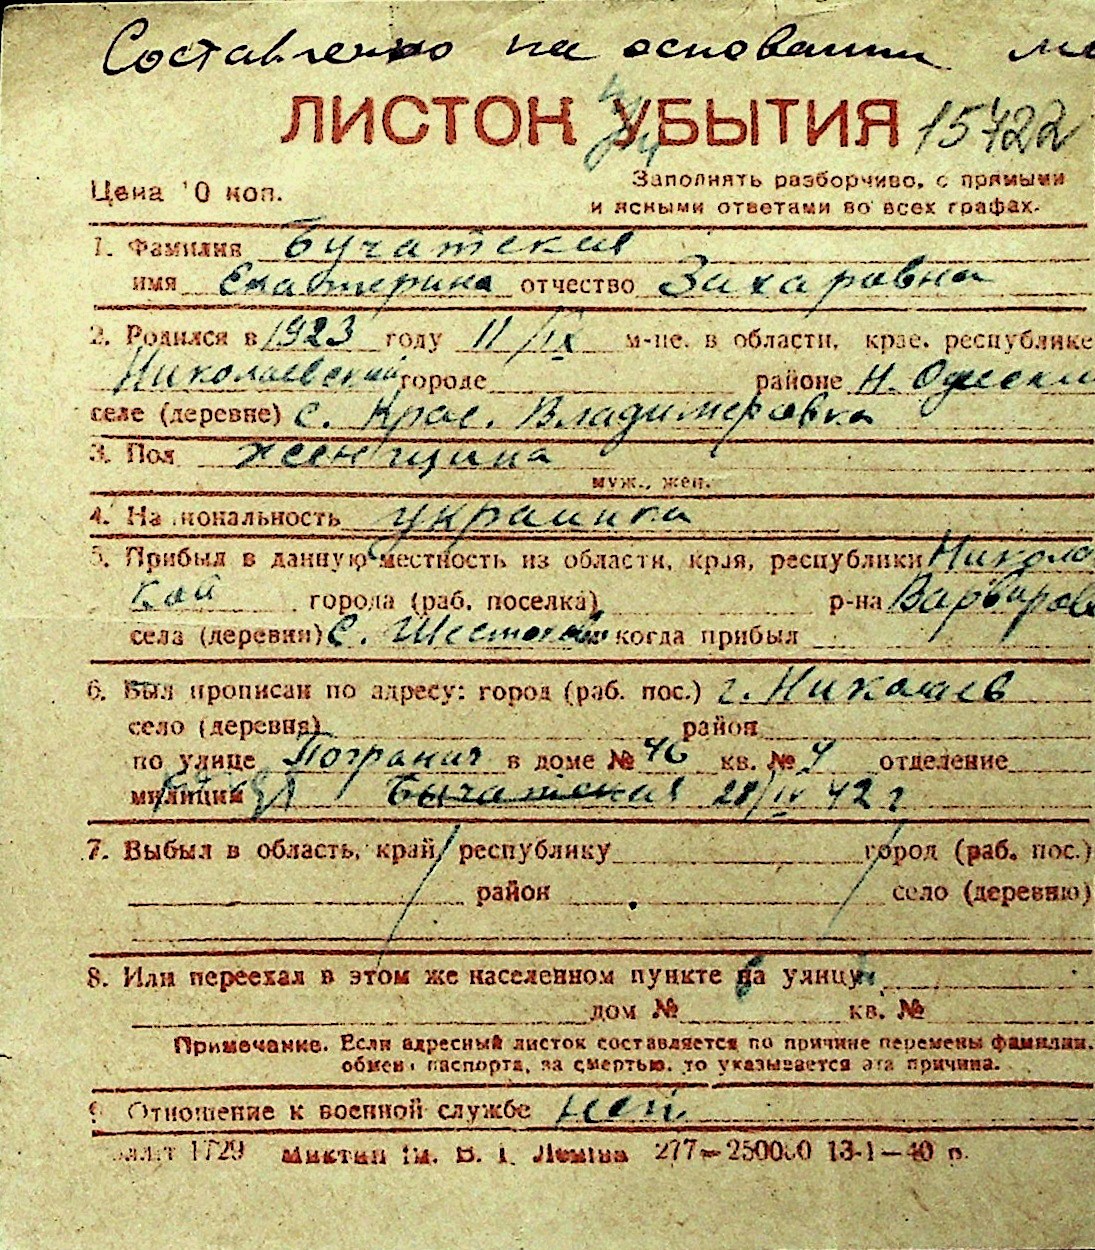 Составлено на основании
ЛИСТОК УБЫТИЯ 15722
Цена 10 коп.
Заполнять разборчиво, с прямыми
и ясными ответами во всех графах.
1. Фамилия Бучатская
имя Екатерина отчество Захаровна
2. Родился в 1923 году 11/IX м-це. в области, крае, республике
Николаевский городе районе Н. Одесский
селе (деревне) с. Крас. Владимировка
3. Пол женщина
муж., жен.
4. Национальность украинка
5. Прибыл в данную местность из области, края, республики Никола
кой города (раб. поселка) р-на Варваров
села (деревни) С. когда прибыл
6. Был прописан по адресу: город (раб. пос.) г. Николаев
село (деревня) район
по улице Погранич в доме № 46 кв. № 4 отделение
милиции Бучатская 28/IV 42 г
7. Выбыл в область, край, республику город (раб. пос.)
район село (деревню)
8. Или переехал в этом же населенном пункте на улицу
дом № кв. №
Примечание. Если адресный листок составляется по причине перемены фамилии,
обмена паспорта, за смертью, то указывается эта причина.
9. Отношение к военной службе нет
1729 Миктип ім. В. І. Леніна 277—250000 13-1—40 р.